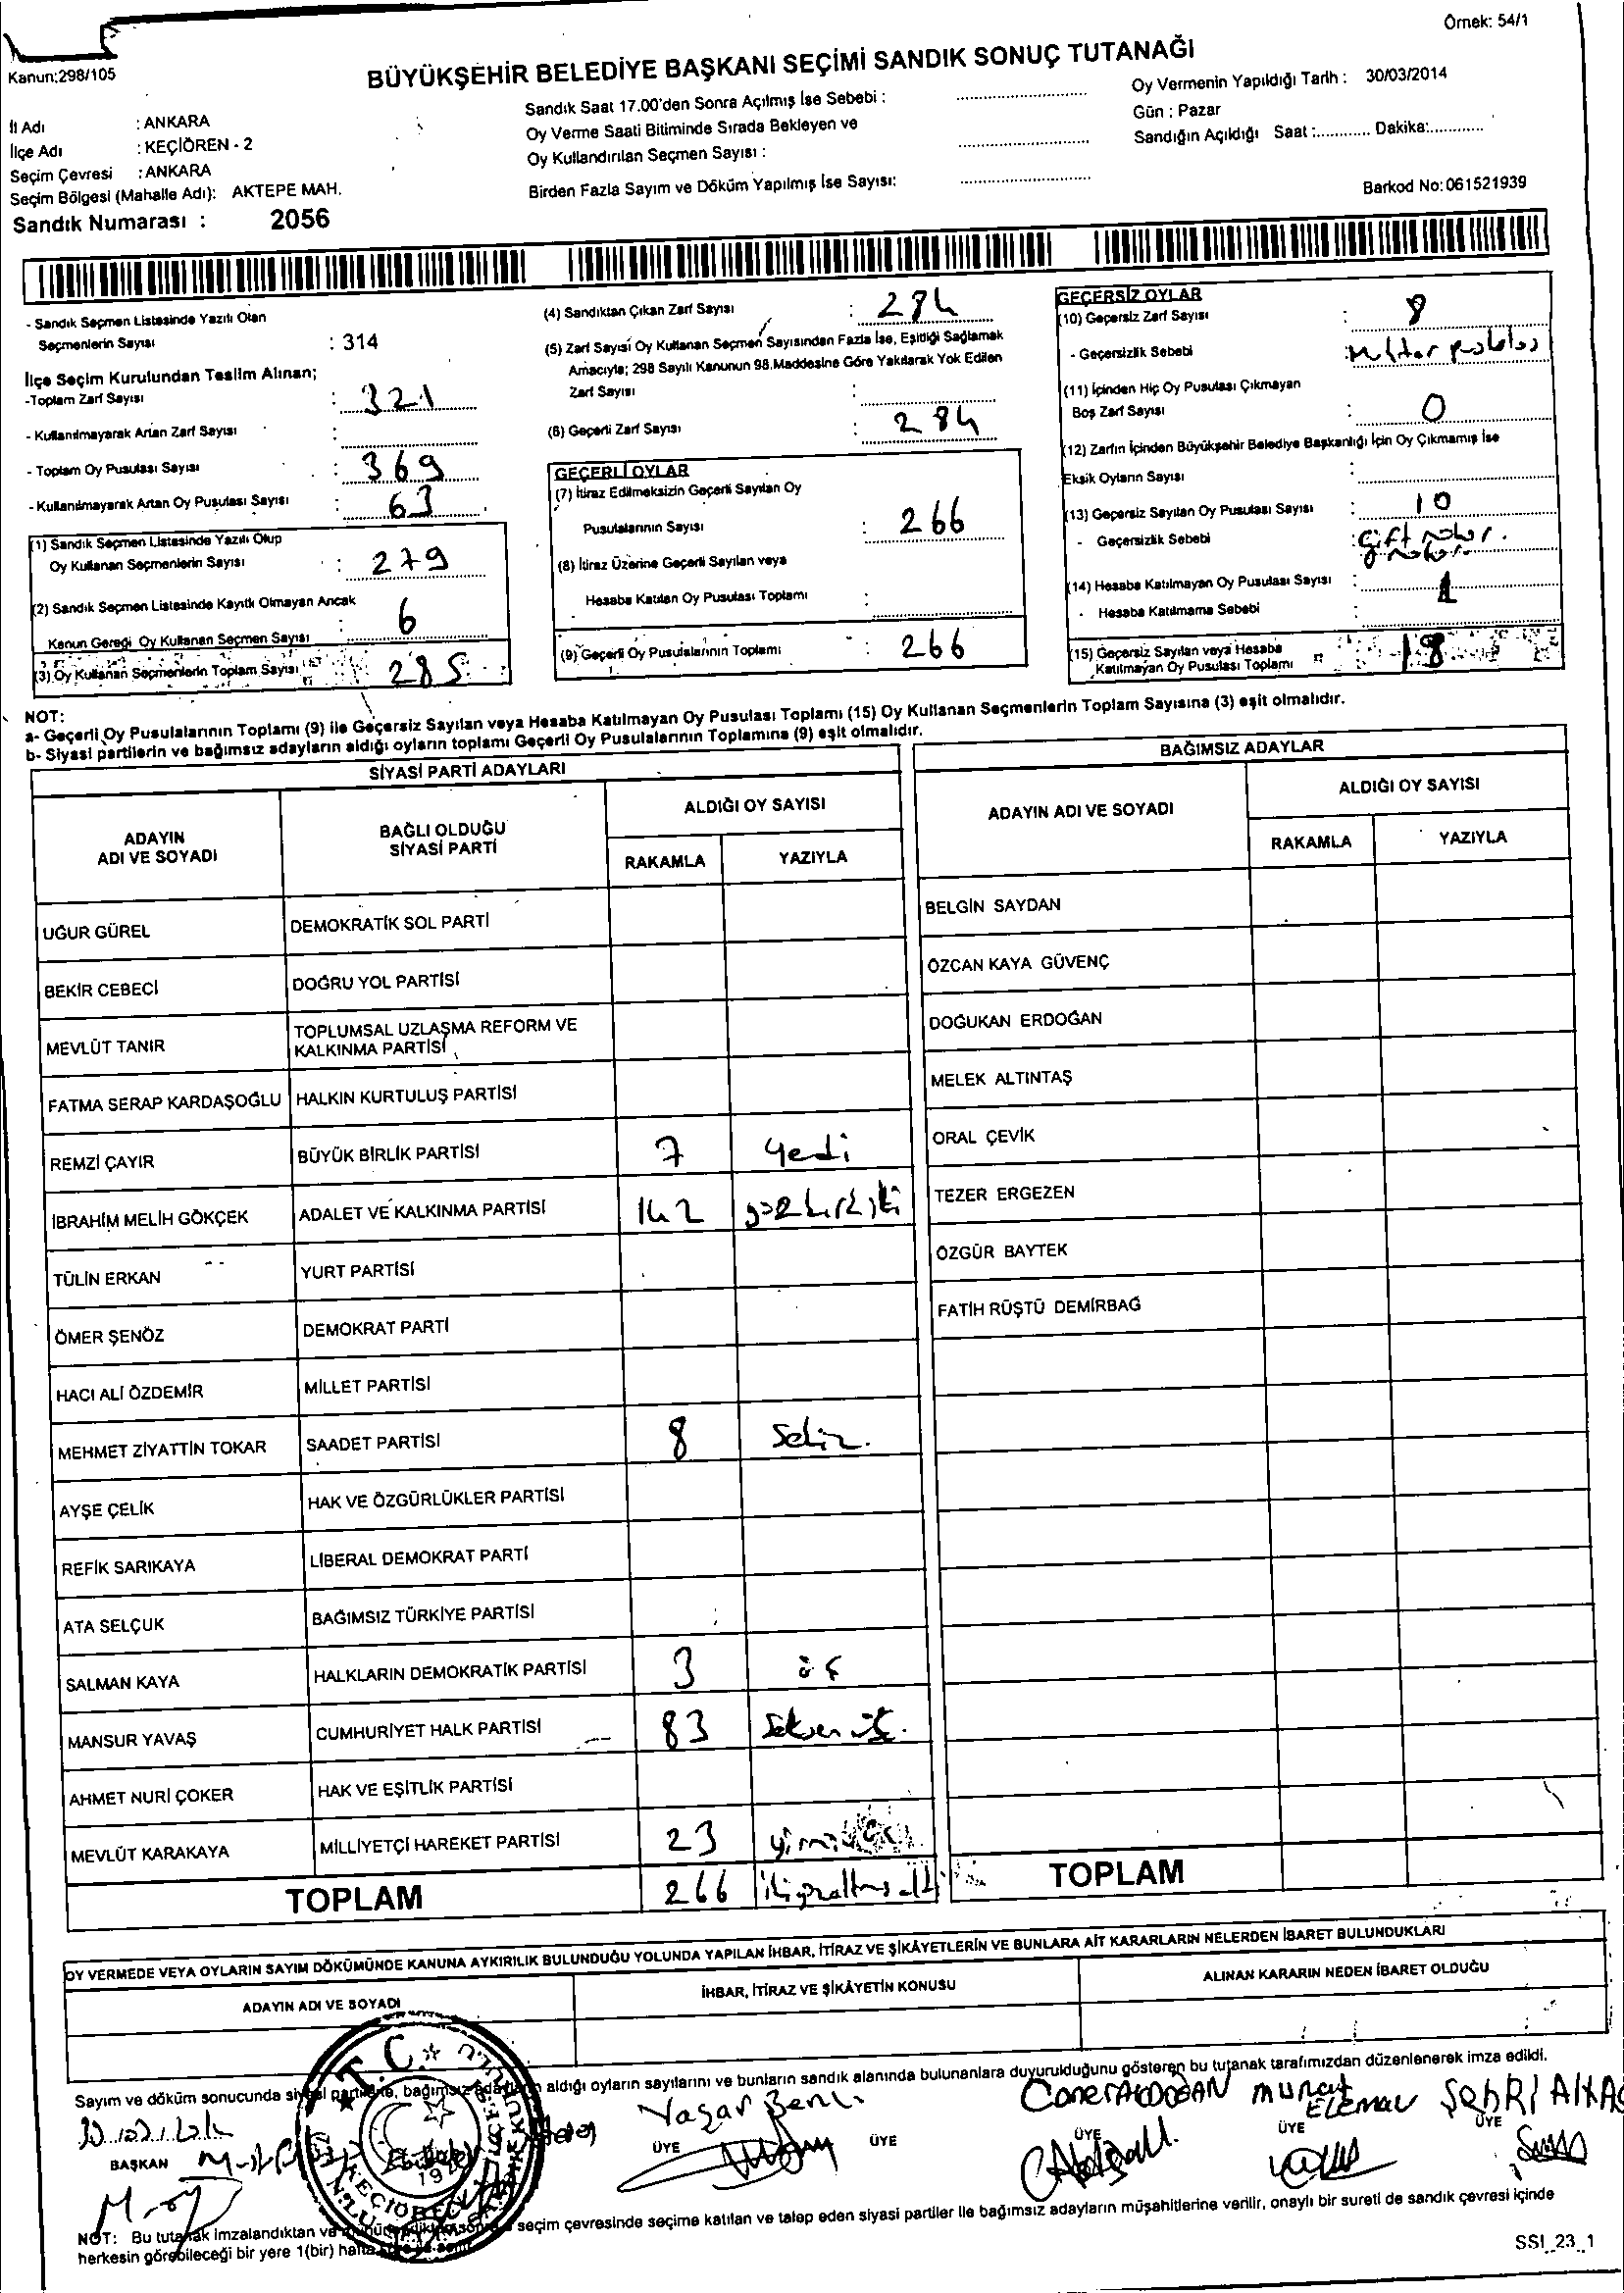 Örnek: 54/1
Kanun:298/105
BÜYÜKŞEHİR BELEDİYE BAŞKANI SEÇİMİ SANDIK SONUÇ TUTANAĞI
İl Adı : ANKARA
İlçe Adı : KEÇİÖREN - 2
Seçim Çevresi : ANKARA
Seçim Bölgesi (Mahalle Adı): AKTEPE MAH.
Sandık Numarası : 2056
Sandık Saat 17.00'den Sonra Açılmış İse Sebebi :
Oy Verme Saati Bitiminde Sırada Bekleyen ve
Oy Kullandırılan Seçmen Sayısı :
Birden Fazla Sayım ve Döküm Yapılmış İse Sayısı:
Oy Vermenin Yapıldığı Tarih : 30/03/2014
Gün : Pazar
Sandığın Açıldığı Saat :............ Dakika:............
Barkod No:061521939
- Sandık Seçmen Listesinde Yazılı Olan
Seçmenlerin Sayısı : 314
İlçe Seçim Kurulundan Teslim Alınan;
-Toplam Zarf Sayısı : 321
- Kullanılmayarak Artan Zarf Sayısı :
- Toplam Oy Pusulası Sayısı : 369
- Kullanılmayarak Artan Oy Pusulası Sayısı : 63
(1) Sandık Seçmen Listesinde Yazılı Olup
Oy Kullanan Seçmenlerin Sayısı : 279
(2) Sandık Seçmen Listesinde Kayıtlı Olmayan Ancak
Kanun Gereği Oy Kullanan Seçmen Sayısı : 6
(3) Oy Kullanan Seçmenlerin Toplam Sayısı : 285
(4) Sandıktan Çıkan Zarf Sayısı : 284
(5) Zarf Sayısı Oy Kullanan Seçmen Sayısından Fazla İse, Eşitliği Sağlamak
Amacıyla; 298 Sayılı Kanunun 98.Maddesine Göre Yakılarak Yok Edilen
Zarf Sayısı :
(6) Geçerli Zarf Sayısı : 284
GEÇERLİ OYLAR
(7) İtiraz Edilmeksizin Geçerli Sayılan Oy
Pusulalarının Sayısı : 266
(8) İtiraz Üzerine Geçerli Sayılan veya
Hesaba Katılan Oy Pusulası Toplamı :
(9) Geçerli Oy Pusulalarının Toplamı : 266
GEÇERSİZ OYLAR
(10) Geçersiz Zarf Sayısı : 8
- Geçersizlik Sebebi :
(11) İçinden Hiç Oy Pusulası Çıkmayan
Boş Zarf Sayısı : 0
(12) Zarfın İçinden Büyükşehir Belediye Başkanlığı İçin Oy Çıkmamış İse
Eksik Oyların Sayısı :
(13) Geçersiz Sayılan Oy Pusulası Sayısı : 10
- Geçersizlik Sebebi : çift
(14) Hesaba Katılmayan Oy Pusulası Sayısı : 1
- Hesaba Katılmama Sebebi :
(15) Geçersiz Sayılan veya Hesaba
Katılmayan Oy Pusulası Toplamı : 18
NOT:
a- Geçerli Oy Pusulalarının Toplamı (9) ile Geçersiz Sayılan veya Hesaba Katılmayan Oy Pusulası Toplamı (15) Oy Kullanan Seçmenlerin Toplam Sayısına (3) eşit olmalıdır.
b- Siyasi partilerin ve bağımsız adayların aldığı oyların toplamı Geçerli Oy Pusulalarının Toplamına (9) eşit olmalıdır.
SİYASİ PARTİ ADAYLARI
ADAYIN ADI VE SOYADI
BAĞLI OLDUĞU SİYASİ PARTİ
ALDIĞI OY SAYISI
RAKAMLA YAZIYLA
UĞUR GÜREL DEMOKRATİK SOL PARTİ
BEKİR CEBECİ DOĞRU YOL PARTİSİ
MEVLÜT TANIR TOPLUMSAL UZLAŞMA REFORM VE KALKINMA PARTİSİ
FATMA SERAP KARDAŞOĞLU HALKIN KURTULUŞ PARTİSİ
REMZİ ÇAYIR BÜYÜK BİRLİK PARTİSİ 7 Yedi
İBRAHİM MELİH GÖKÇEK ADALET VE KALKINMA PARTİSİ 142 yüzkırkiki
TÜLİN ERKAN YURT PARTİSİ
ÖMER ŞENÖZ DEMOKRAT PARTİ
HACI ALİ ÖZDEMİR MİLLET PARTİSİ
MEHMET ZİYATTİN TOKAR SAADET PARTİSİ 8 Sekiz.
AYŞE ÇELİK HAK VE ÖZGÜRLÜKLER PARTİSİ
REFİK SARIKAYA LİBERAL DEMOKRAT PARTİ
ATA SELÇUK BAĞIMSIZ TÜRKİYE PARTİSİ
SALMAN KAYA HALKLARIN DEMOKRATİK PARTİSİ 3 üç
MANSUR YAVAŞ CUMHURİYET HALK PARTİSİ 83 Seksen üç.
AHMET NURİ ÇOKER HAK VE EŞİTLİK PARTİSİ
MEVLÜT KARAKAYA MİLLİYETÇİ HAREKET PARTİSİ 23 yirmiüç
TOPLAM 266 ikiyüzaltmışaltı
BAĞIMSIZ ADAYLAR
ADAYIN ADI VE SOYADI
ALDIĞI OY SAYISI
RAKAMLA YAZIYLA
BELGİN SAYDAN
ÖZCAN KAYA GÜVENÇ
DOĞUKAN ERDOĞAN
MELEK ALTINTAŞ
ORAL ÇEVİK
TEZER ERGEZEN
ÖZGÜR BAYTEK
FATİH RÜŞTÜ DEMİRBAĞ
TOPLAM
OY VERMEDE VEYA OYLARIN SAYIM DÖKÜMÜNDE KANUNA AYKIRILIK BULUNDUĞU YOLUNDA YAPILAN İHBAR, İTİRAZ VE ŞİKÂYETLERİN VE BUNLARA AİT KARARLARIN NELERDEN İBARET BULUNDUKLARI
ADAYIN ADI VE SOYADI
İHBAR, İTİRAZ VE ŞİKÂYETİN KONUSU
ALINAN KARARIN NEDEN İBARET OLDUĞU
Sayım ve döküm sonucunda siyasi partilerle, bağımsız adayların aldığı oyların sayılarını ve bunların sandık alanında bulunanlara duyurulduğunu gösteren bu tutanak tarafımızdan düzenlenerek imza edildi.
Yaşar
Caner AKDOĞAN
Murat
BAŞKAN ÜYE ÜYE ÜYE ÜYE ÜYE
T.C.
KEÇİÖREN
NOT: Bu tutanak imzalandıktan ve seçim çevresinde seçime katılan ve talep eden siyasi partiler ile bağımsız adayların müşahitlerine verilir, onaylı bir sureti de sandık çevresi içinde
herkesin görebileceği bir yere 1(bir) hafta
SSI_23_1